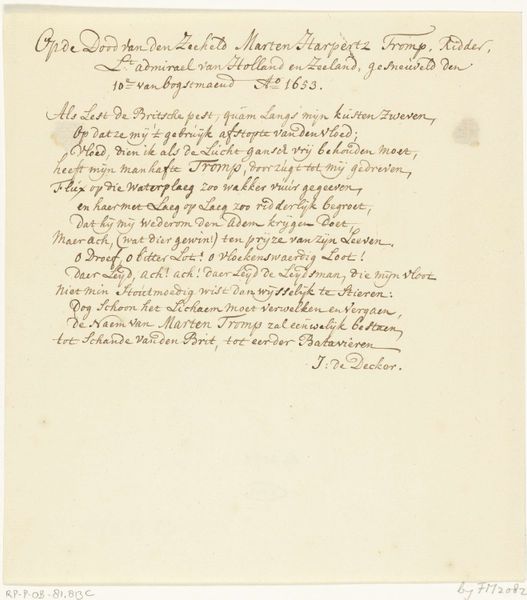 Op de Dood van den Zeeheld Marten Harpertz Tromp, Ridder,
Lt admirael van Holland en Zeeland, gesneuveld den
10e van Oogstmaend Ao 1653.
Als Lest de Britsche pest, quam Langs mijn kusten Zweven,
Op dat ze mij 't gebruijk afstopte van den vloed;
Vloed, dien ik als de Lucht gansch vrij behouden moet,
heeft mijn manhaft Tromp, door zugt tot mij gedreven,
Flux op die Waterplaeg zoo wakker vuir gegeeven,
en haer met Laeg op Laeg zoo ridderlijk begroet,
dat hij mij wederom den adem krijgen doet,
Maer ach, (wat dier gewin!) ten prijze van zijn Leeven.
O Droef, o bitter Lot! o vloekenswaerdig Loot!
Daer Leyd, ach! ach! daer Leyd de Leydsman, die mijn vloot
Niet min Stoutmoedig wist dan wijsselijk te Stieren:
Dog Schoon het Lichaem moet verwelken en vergaen,
de Naem van Marten Tromp zal eeuwelijk bestaen,
tot Schande van den Brit, tot eer der Batavieren
J: de Decker.
RP-P-OB-81.813C
by FM 2082